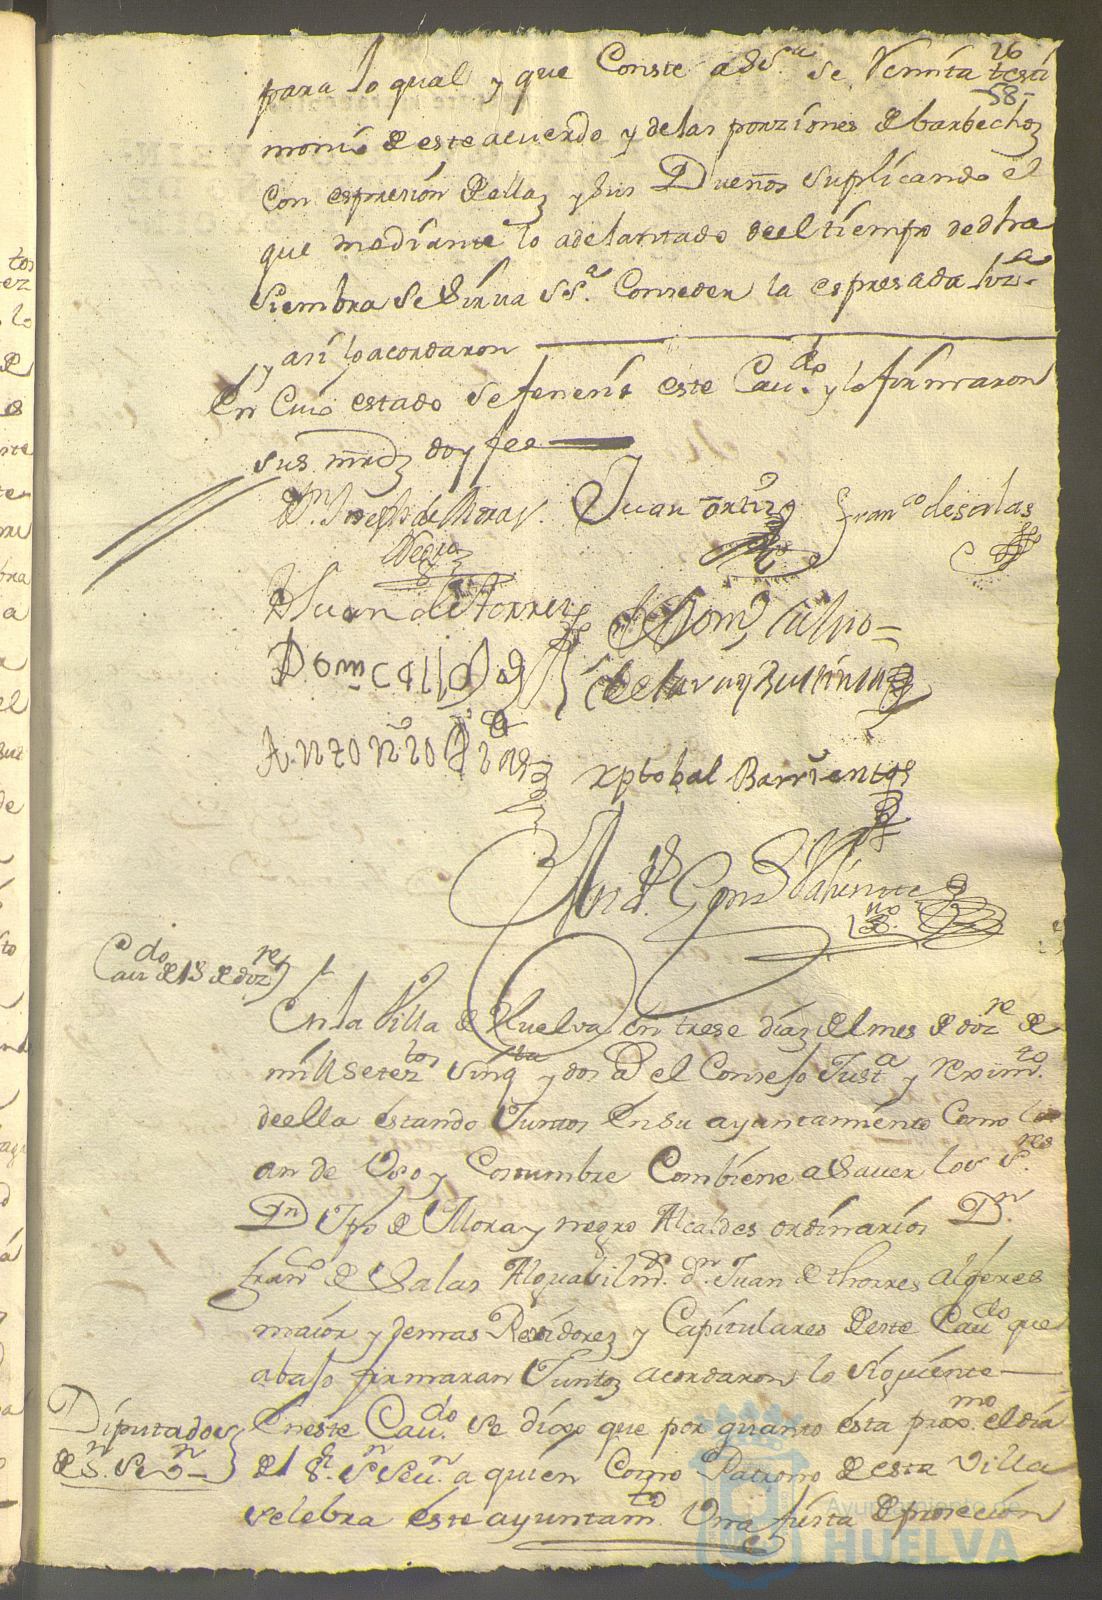 26
58
para lo qual y que Conste a Sª. se Remita testi
monio de este acuerdo y de las porziones de barbechoz
Con espresion de ellaz y sus Dueños suplicando el
que mediante lo adelantado de el tiempo de dha
siembra se sirva Sª. Conseder la espresada liz.ª
y asi lo acordaron
En Cuio estado se fenesio este Cau.do y lo firmaron
sus mrdz doy fee
Dn. Joseph de Mora y
Negro
Juan Ortiz
Fran.co de salas
Dn Juan de Torres
Dom.
Antonio Dias
Xptobal Barrientos
Cau.do de 13 de dizre
En la Villa de Huelva en trese diaz del mes de dizre de
mill setez.tos sinq.ta y dos a.s el Consejo Just.a y reximto.
de ella estando Juntos en su ayuntamiento Como lo
an de Uso y Costumbre Combiene a Sauer los S.res
Dn. Jph de Mora y negro Alcaldes ordinarios Dn.
fran.co de Salas Alguasil mr. dn. Juan de thorres alferes
maior y demas Rexidorez y Capitulares de este Cau.do que
abajo firmaran Juntoz acordaron lo siguiente
Diputados
de Sn. Sen.
En este Cau.do se dixo que por quanto esta prox.mo el dia
del Sr. Sn Seun. a quien Como Patrono de esta Villa
selebra este ayuntamto. Una fiesta de prosecion
Ayuntamiento de
HUELVA